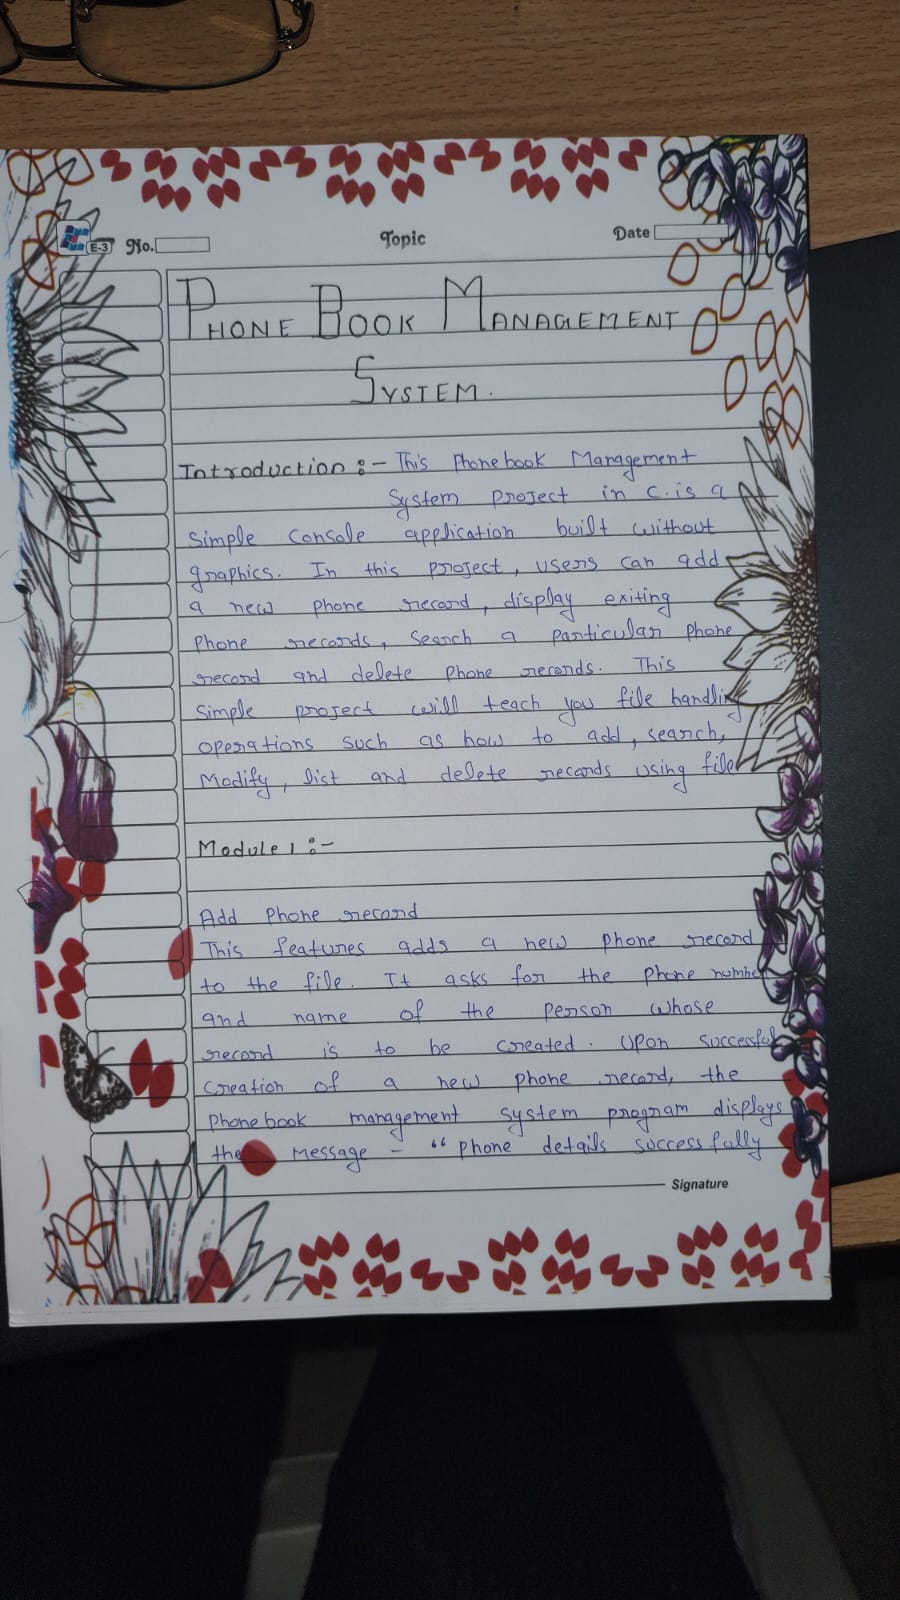 E-3 No. Topic Date
PHONE BOOK MANAGEMENT
SYSTEM.
Introduction :- This Phonebook Management
System project in C. is a
Simple Console application built without
graphics. In this project, users can add
a new phone record, display exiting
Phone records, Search a particular phone
record and delete phone records. This
Simple project will teach you file handling
operations such as how to add, search,
Modify, list and delete records using file
Module 1 :-
Add Phone record
This features adds a new phone record
to the file. It asks for the phone number
and name of the person whose
record is to be created. Upon successful
creation of a new phone record, the
Phonebook management system program displays
the message - “ phone details successfully
Signature